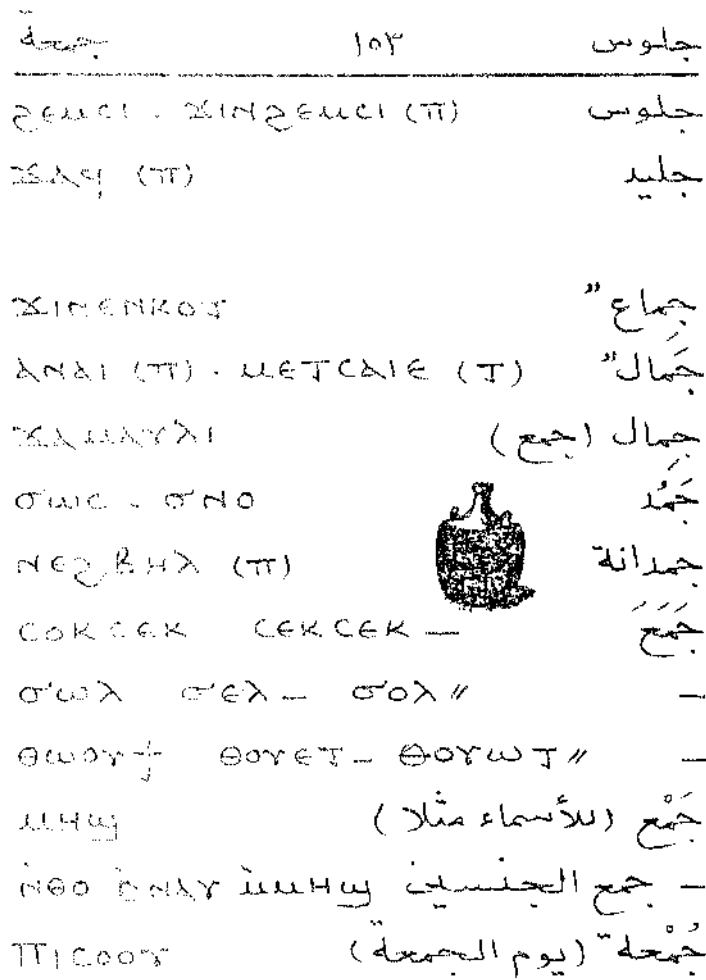 جلوس ١٥٣ جمعة
جلوس ϩⲉⲙⲥⲓ . ϫⲓⲛϩⲉⲙⲥⲓ (ⲡ)
جليد ϫⲁϥ (ⲡ)
جِماعٌ ϫⲓⲛⲉⲛⲕⲟⲧ
جَمَالٌ ⲁⲛⲁⲓ (ⲡ) . ⲙⲉⲧⲥⲁⲓⲉ (ⲧ)
جمال (جمع) ϫⲁⲙⲁⲩⲗⲓ
جَمُد ϭⲱⲥ . ϭⲛⲟ
جمدانة ⲛⲉϩⲃⲏⲗ (ⲡ)
جَمَعَ ⲥⲟⲕⲥⲉⲕ ⲥⲉⲕⲥⲉⲕ –
– ϭⲱⲗ ϭⲉⲗ – ϭⲟⲗ〃
– ⲑⲱⲟⲩϯ ⲑⲟⲩⲉⲧ – ⲑⲟⲩⲱⲧ〃
جَمْع (للأسماء مثلا) ⲙⲏϣ
– جمع الجنسين ⲛ̀ⲑⲟ ⲙ̀ⲙⲏϣ
جُمْعة (يوم الجمعة) ⲡⲓⲥⲟⲟⲩ